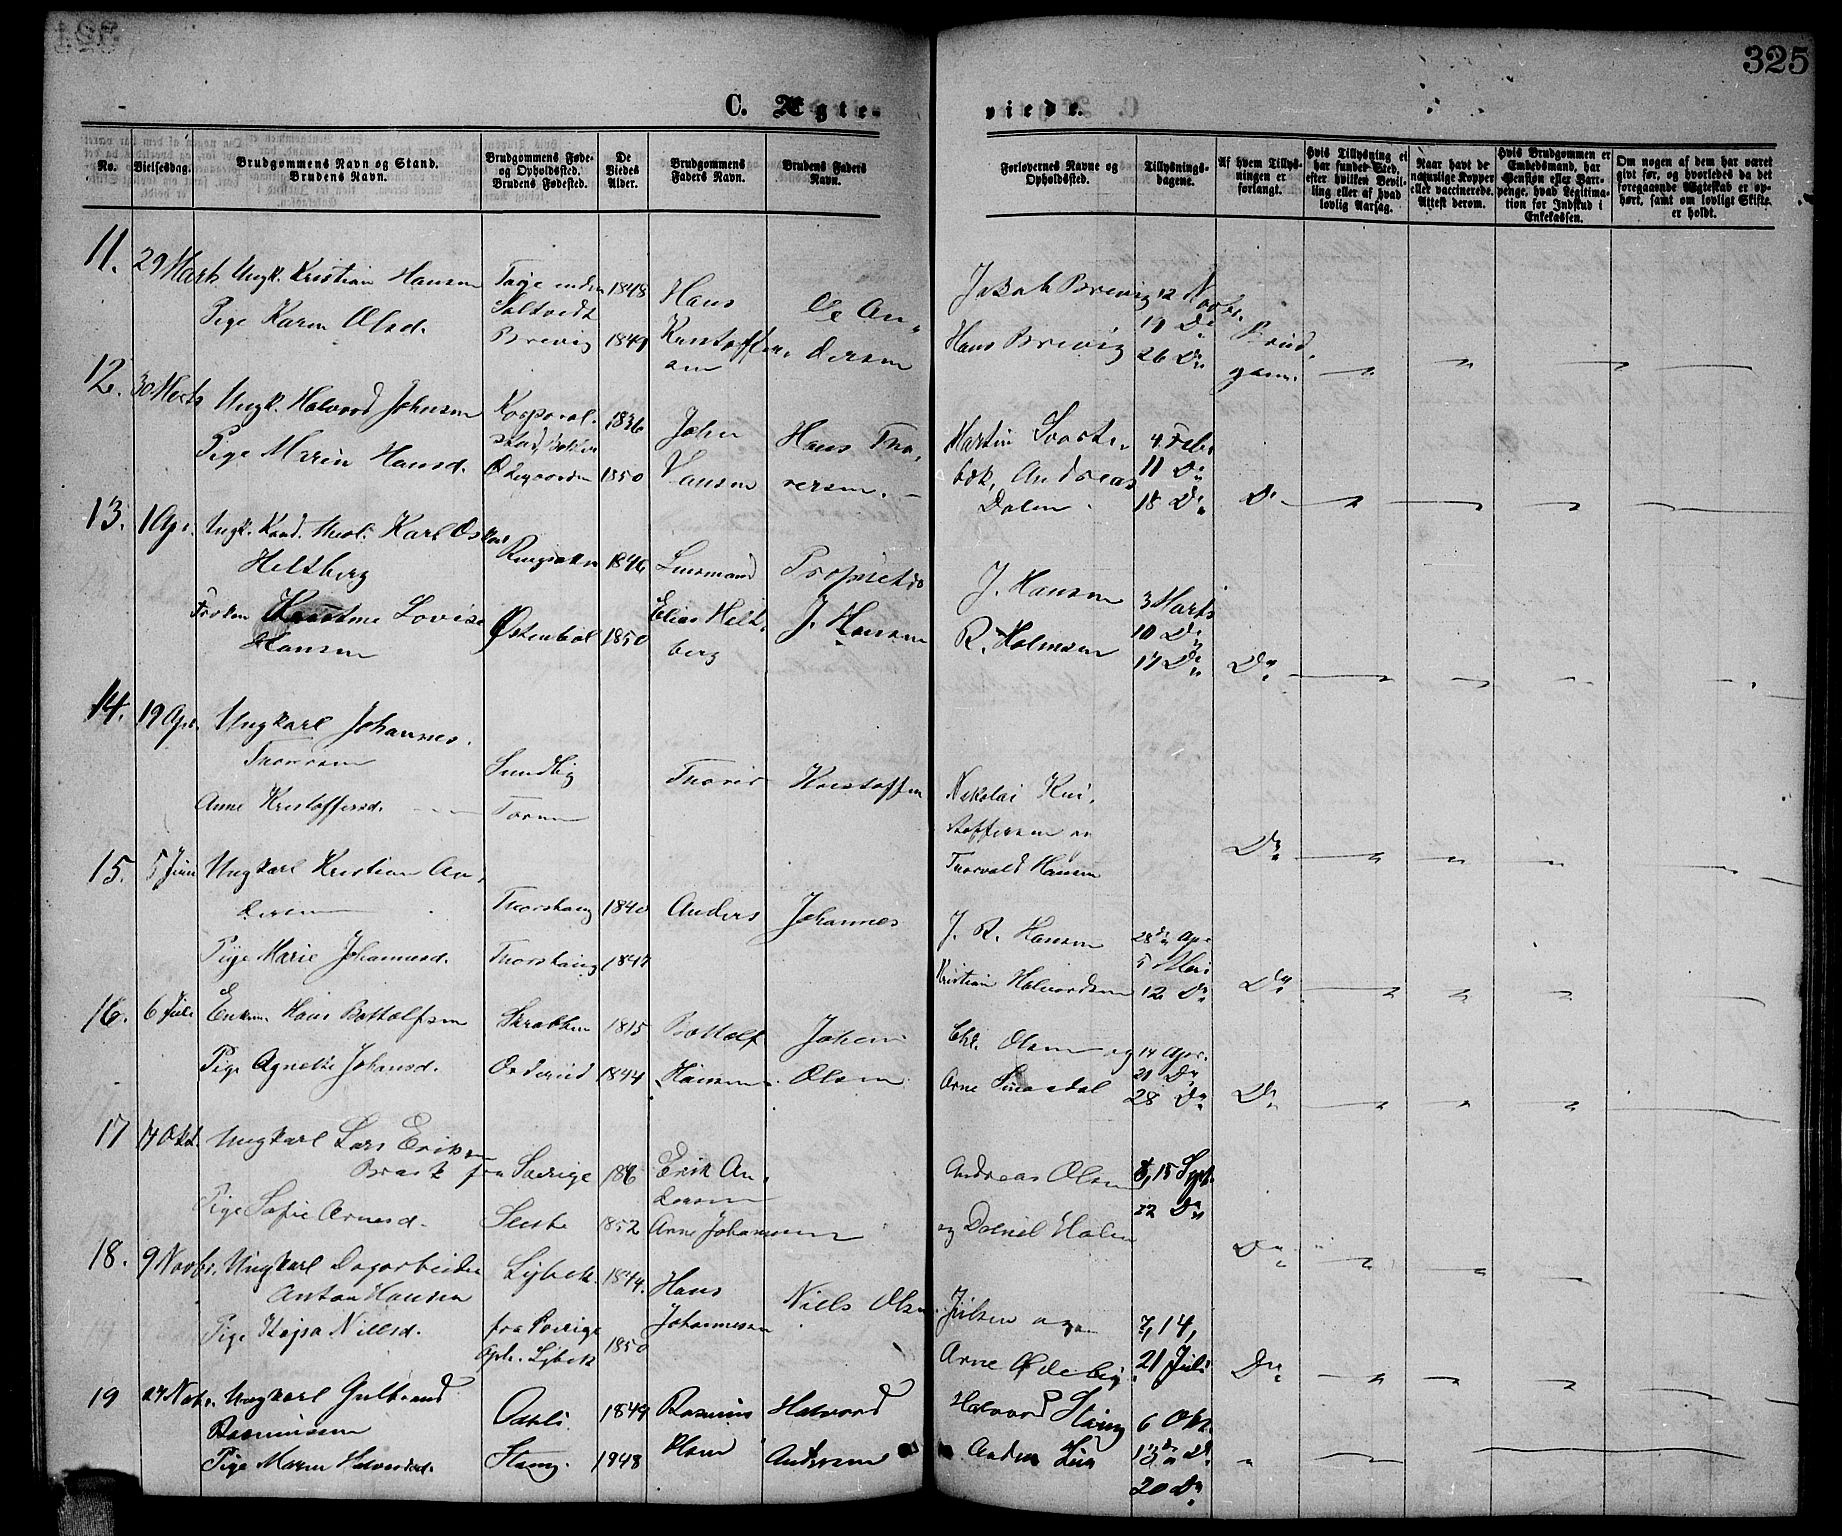 325
C. Ægte-
viede.
No.
Vielsesdag.
Brudgommens Navn og Stand.
Brudens Navn.
Brudgommens Føde-
og Opholdssted.
Brudens Fødested.
De
Viedes
Alder.
Brudgommens
Faders Navn.
Brudens Faders
Navn.
Forlovernes Navne og
Opholdssted.
Tillysnings-
dagene.
Af hvem Tillys-
ningen er
forlangt.
Hvis Tillysning ei
har fundet Sted,
efter hvilken Bevil-
ling eller af hvad
lovlig Aarsag.
Naar havt de
naturlige Kopper
eller vaccinerede.
Attest derom.
Hvis Brudgommen er
Embedsmand, har
Pension eller Bor-
penge, hvad Legitima-
tion for Indskud i
Enkekassen.
Om nogen af dem har været
givt før, og hvorledes da det
foregaaende Ægteskab er op-
hørt, samt om lovligt Skifte
er holdt.
11.
29 Marts
Ungk. Kristian Hansen
Pige Karen Olsd.
Brevig
1848
1849
Hans
Kristoffer-
sen
Ole An-
dersen
Jakob Brevig
Hans Brevig
12 Novbr.
19 Do
26 Do
Brud-
gom.
12.
30 Marts
Ungk. Halvord Johnsen
Pige Marin Hansd.
1836
1850
John
Hansen
Hans Tho-
resen.
Martin
Andreas
Dalen.
4 Febr
11 Do
18 Do
Do
13.
1 Apr.
Ungk. Kand. theol. Karl Oskar
Heltberg
Frøken Lovise
Hansen
Ringsaker
Østenbøl
1846
1850
Lensmand
Elias Helt-
berg
Proprietær
J. Hansen
J. Hansen
R. Holmsen
3 Marts
10 Do
17 Do
Do
14.
19 Apr.
Ungkarl Johannes
Thoresen
Anne Kristoffersd.
Sundby
Thorer
Kristoffer
Nikolai Kri-
stoffersen og
Thorvald Hansen
Do
15.
5 Juni
Ungkarl Kristian An-
dersen
Pige Marie Johannesd.
Thorshaug
Thorshaug
1840
1847
Anders
Johannes
J. R. Hansen
Kristian Halvordsen
28de Apr
5 Mai
12 Do
Do
16.
6 Juli
Enkem. Hans Bottolfsen
Pige Agnethe Johansd.
1815
1844
Bottolf
Hansen
Johan
Olsen
Chr. Olsen og
Arne
14 Apr.
21 Do
28 Do
Do
17
14 Okt.
Ungkarl Lars Eriksen
Brask
Pige Sofie Arnesd.
fra Sverige
1852
Erik An-
dersen
Arne Johannesen
Andreas Olsen
og Daniel Holen
8, 15 Sept.
22 Do
Do
18.
9 Novbr.
Ungkarl Dagarbeider
Anton Hansen
Pige Kajsa Nilsd.
Lybek
fra Sverige
Oph. Lybek
1844.
1850
Hans
Johannesen
Niels Olsen
Julsen og
Arne Ødeby
7, 14,
21 Juli
Do
19
27 Novbr.
Ungkarl Gulbrand
Rasmussen
Pige Maren Halvordsd.
Stang
1849
1848
Rasmus
Halvord
Andersen
Halvord Stang
6 Okt.
13de Do
20 Do